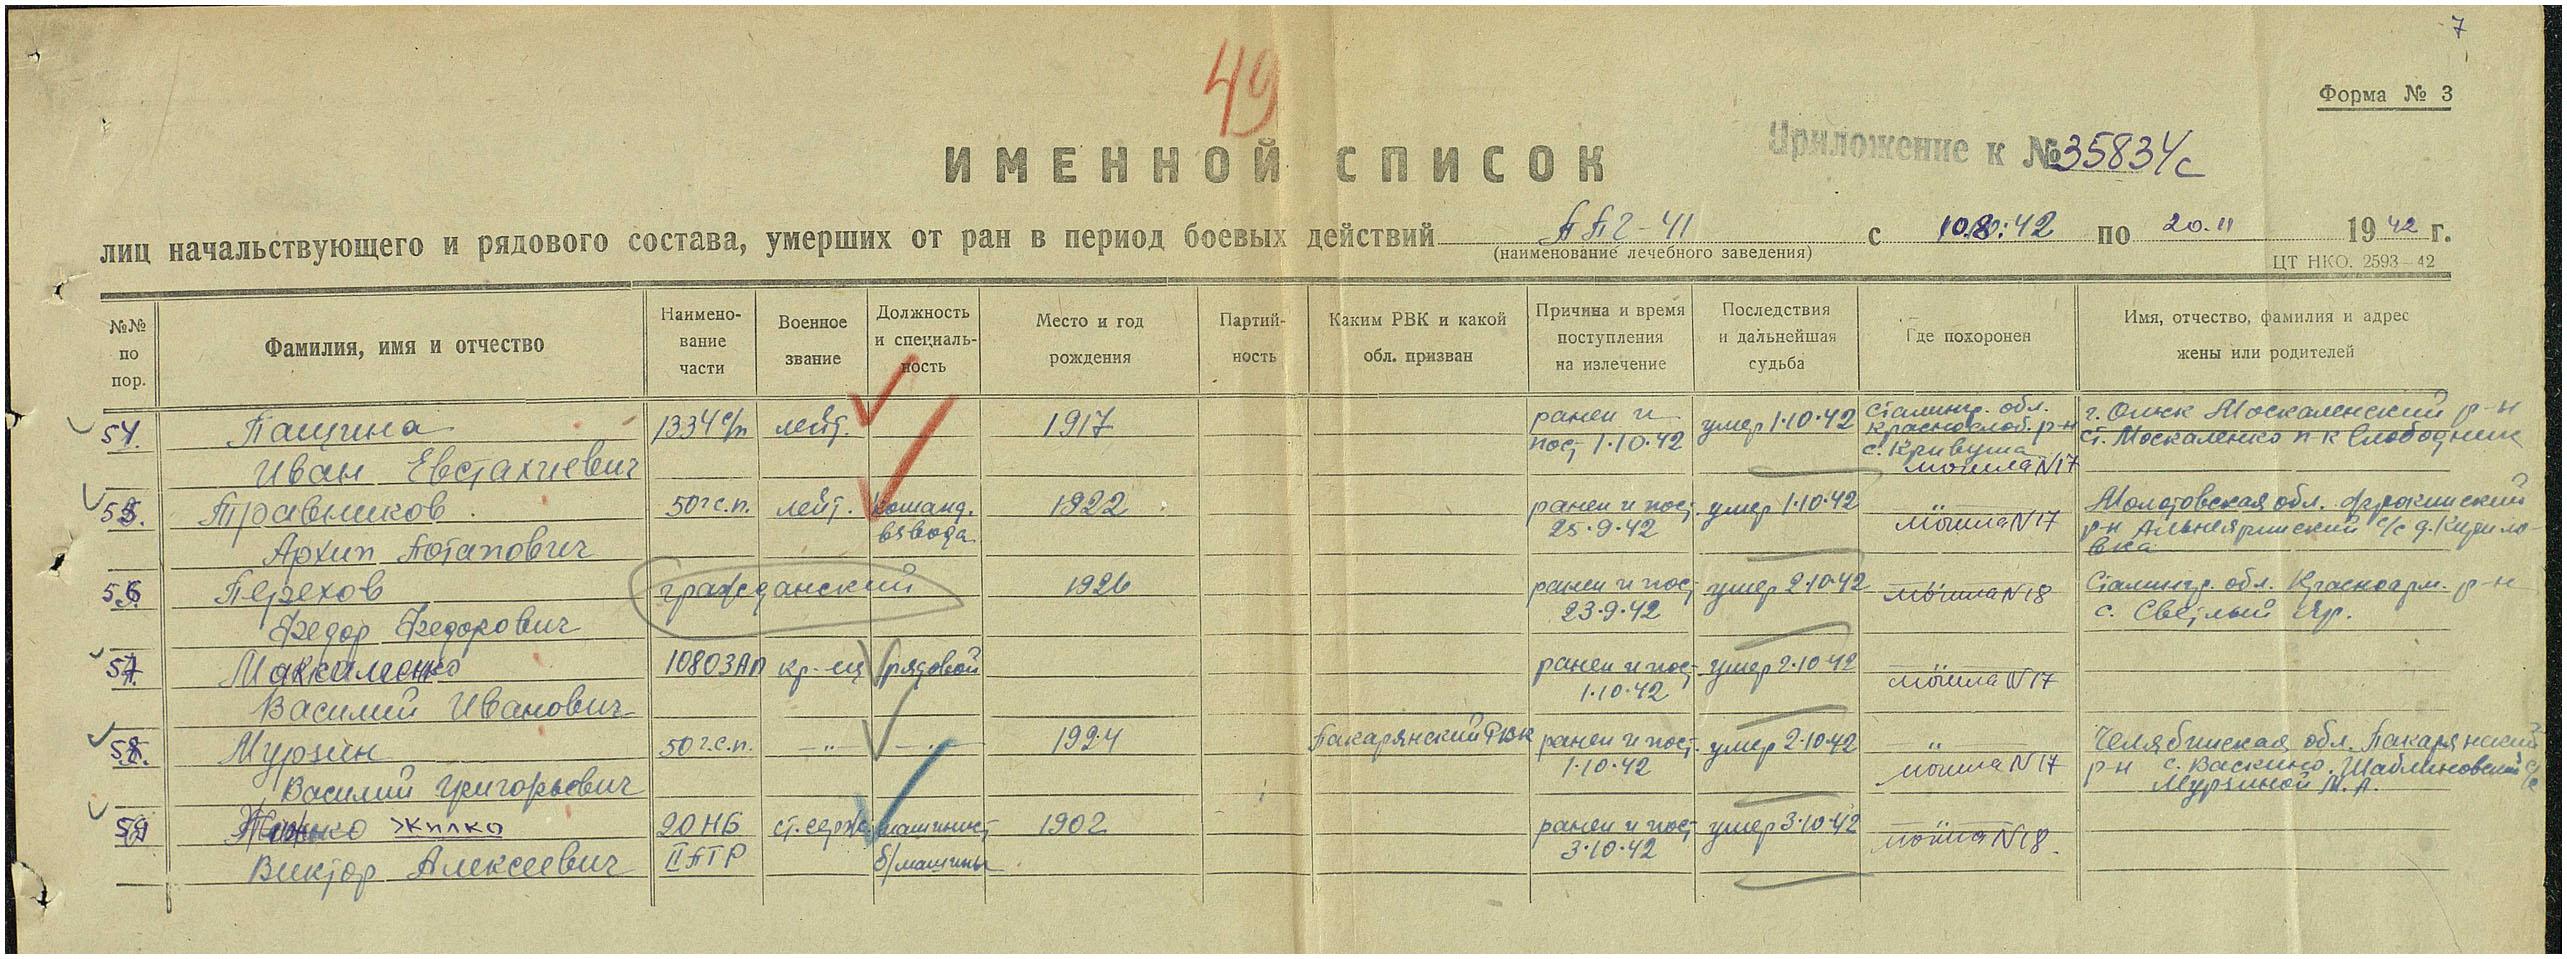 7
49
Форма № 3
Приложение к № 35834с
ИМЕННОЙ СПИСОК
лиц начальствующего и рядового состава, умерших от ран в период боевых действий ППГ-41 с 10.8.42 по 20.11 1942 г.
(наименование лечебного заведения)
ЦТ НКО. 2593—42
№№ по пор.
Фамилия, имя и отчество
Наимено-
вание
части
Военное
звание
Должность
и специаль-
ность
Место и год
рождения
Партий-
ность
Каким РВК и какой
обл. призван
Причина и время
поступления
на излечение
Последствия
и дальнейшая
судьба
Где похоронен
Имя, отчество, фамилия и адрес
жены или родителей
54. Пащина 1334 с/п лейт. 1917 ранен и умер 1.10.42 Сталингр. обл. г. Омск Москаленский р-н
пост 1.10.42 Краснослоб. р-н ст. Москаленко п-к Слободчик
Иван Евстахиевич с. Кривуша
могила N17
55. Травников 50 г.с.п. лейт. команд. 1922 ранен и пост. умер 1.10.42 — " — Молотовская обл.
взвода 25.9.42 могила N17 р-н с/с д. Кирило-
Архип Потапович вка
56. Перехов гражданский 1926 ранен и пост умер 2.10.42 — " — Сталингр. обл. Красноарм. р-н
23.9.42 могила N18 с. Светлый Яр.
Федор Федорович
57. Макаленко 1080 ЗАП кр-ец рядовой ранен и пост умер 2.10.42 — " —
1.10.42 могила N17
Василий Иванович
58. Мурзин 50 г.с.п. — " — — " — 1924 Пакарянский РВК ранен и пост. умер 2.10.42 — " — Челябинская обл. Пакарянский
1.10.42 могила N17 р-н с. Васкино, Шаблиновский с/с
Василий Григорьевич Мурзиной М. А.
59 Жилко 90 НБ ст. серж. машинист 1902 ранен и пост умер 3.10.42 — " —
II ПТР б/машины 3.10.42 могила N18.
Виктор Алексеевич